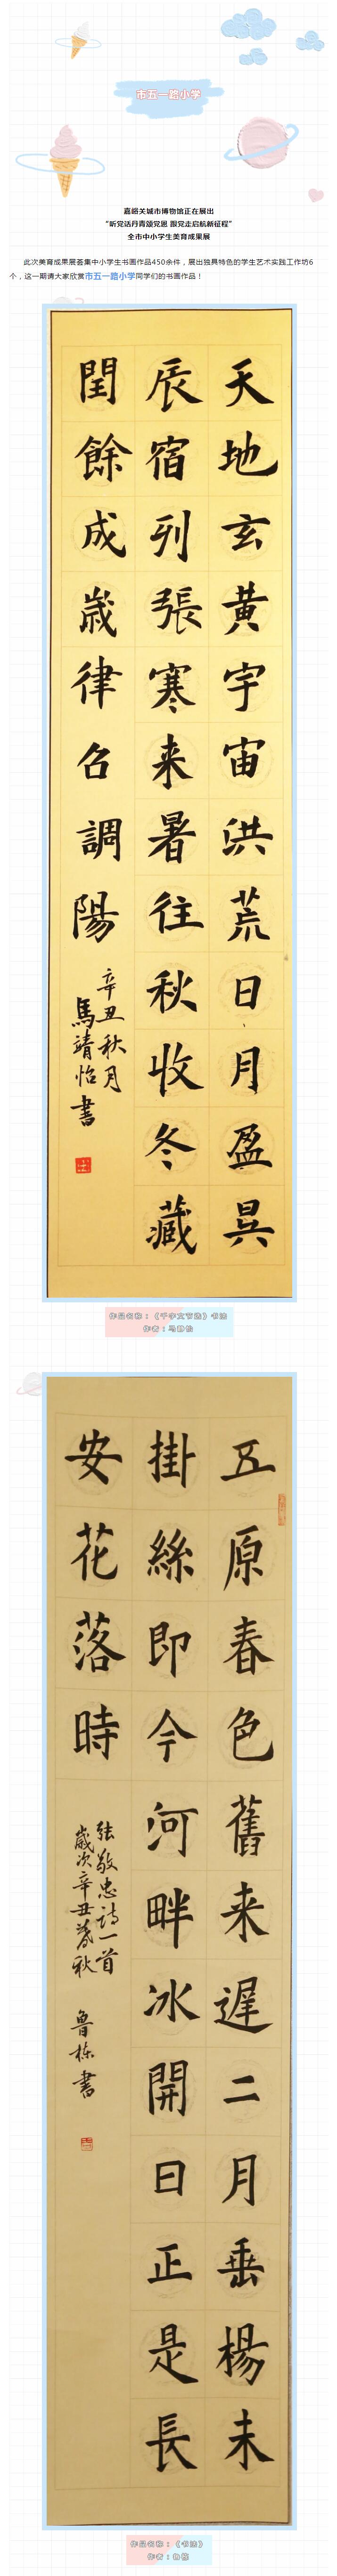 市五一路小学
嘉峪关城市博物馆正在展出
“听党话丹青颂党恩 跟党走启航新征程”
全市中小学生美育成果展
此次美育成果展荟集中小学生书画作品450余件，展出独具特色的学生艺术实践工作坊6
个，这一期请大家欣赏市五一路小学同学们的书画作品！
天地玄黄宇宙洪荒日月盈昃
辰宿列張寒来暑往秋收冬藏
閏餘成歲律召調陽
辛丑秋月
馬靖怡書
作品名称：《千字文节选》书法
作者：马静怡
五原春色舊来遲二月垂楊未
掛絲即今河畔冰開日正是長
安花落時
張敬忠詩一首
歲次辛丑暮秋 魯栋書
作品名称：《书法》
作者：鲁栋